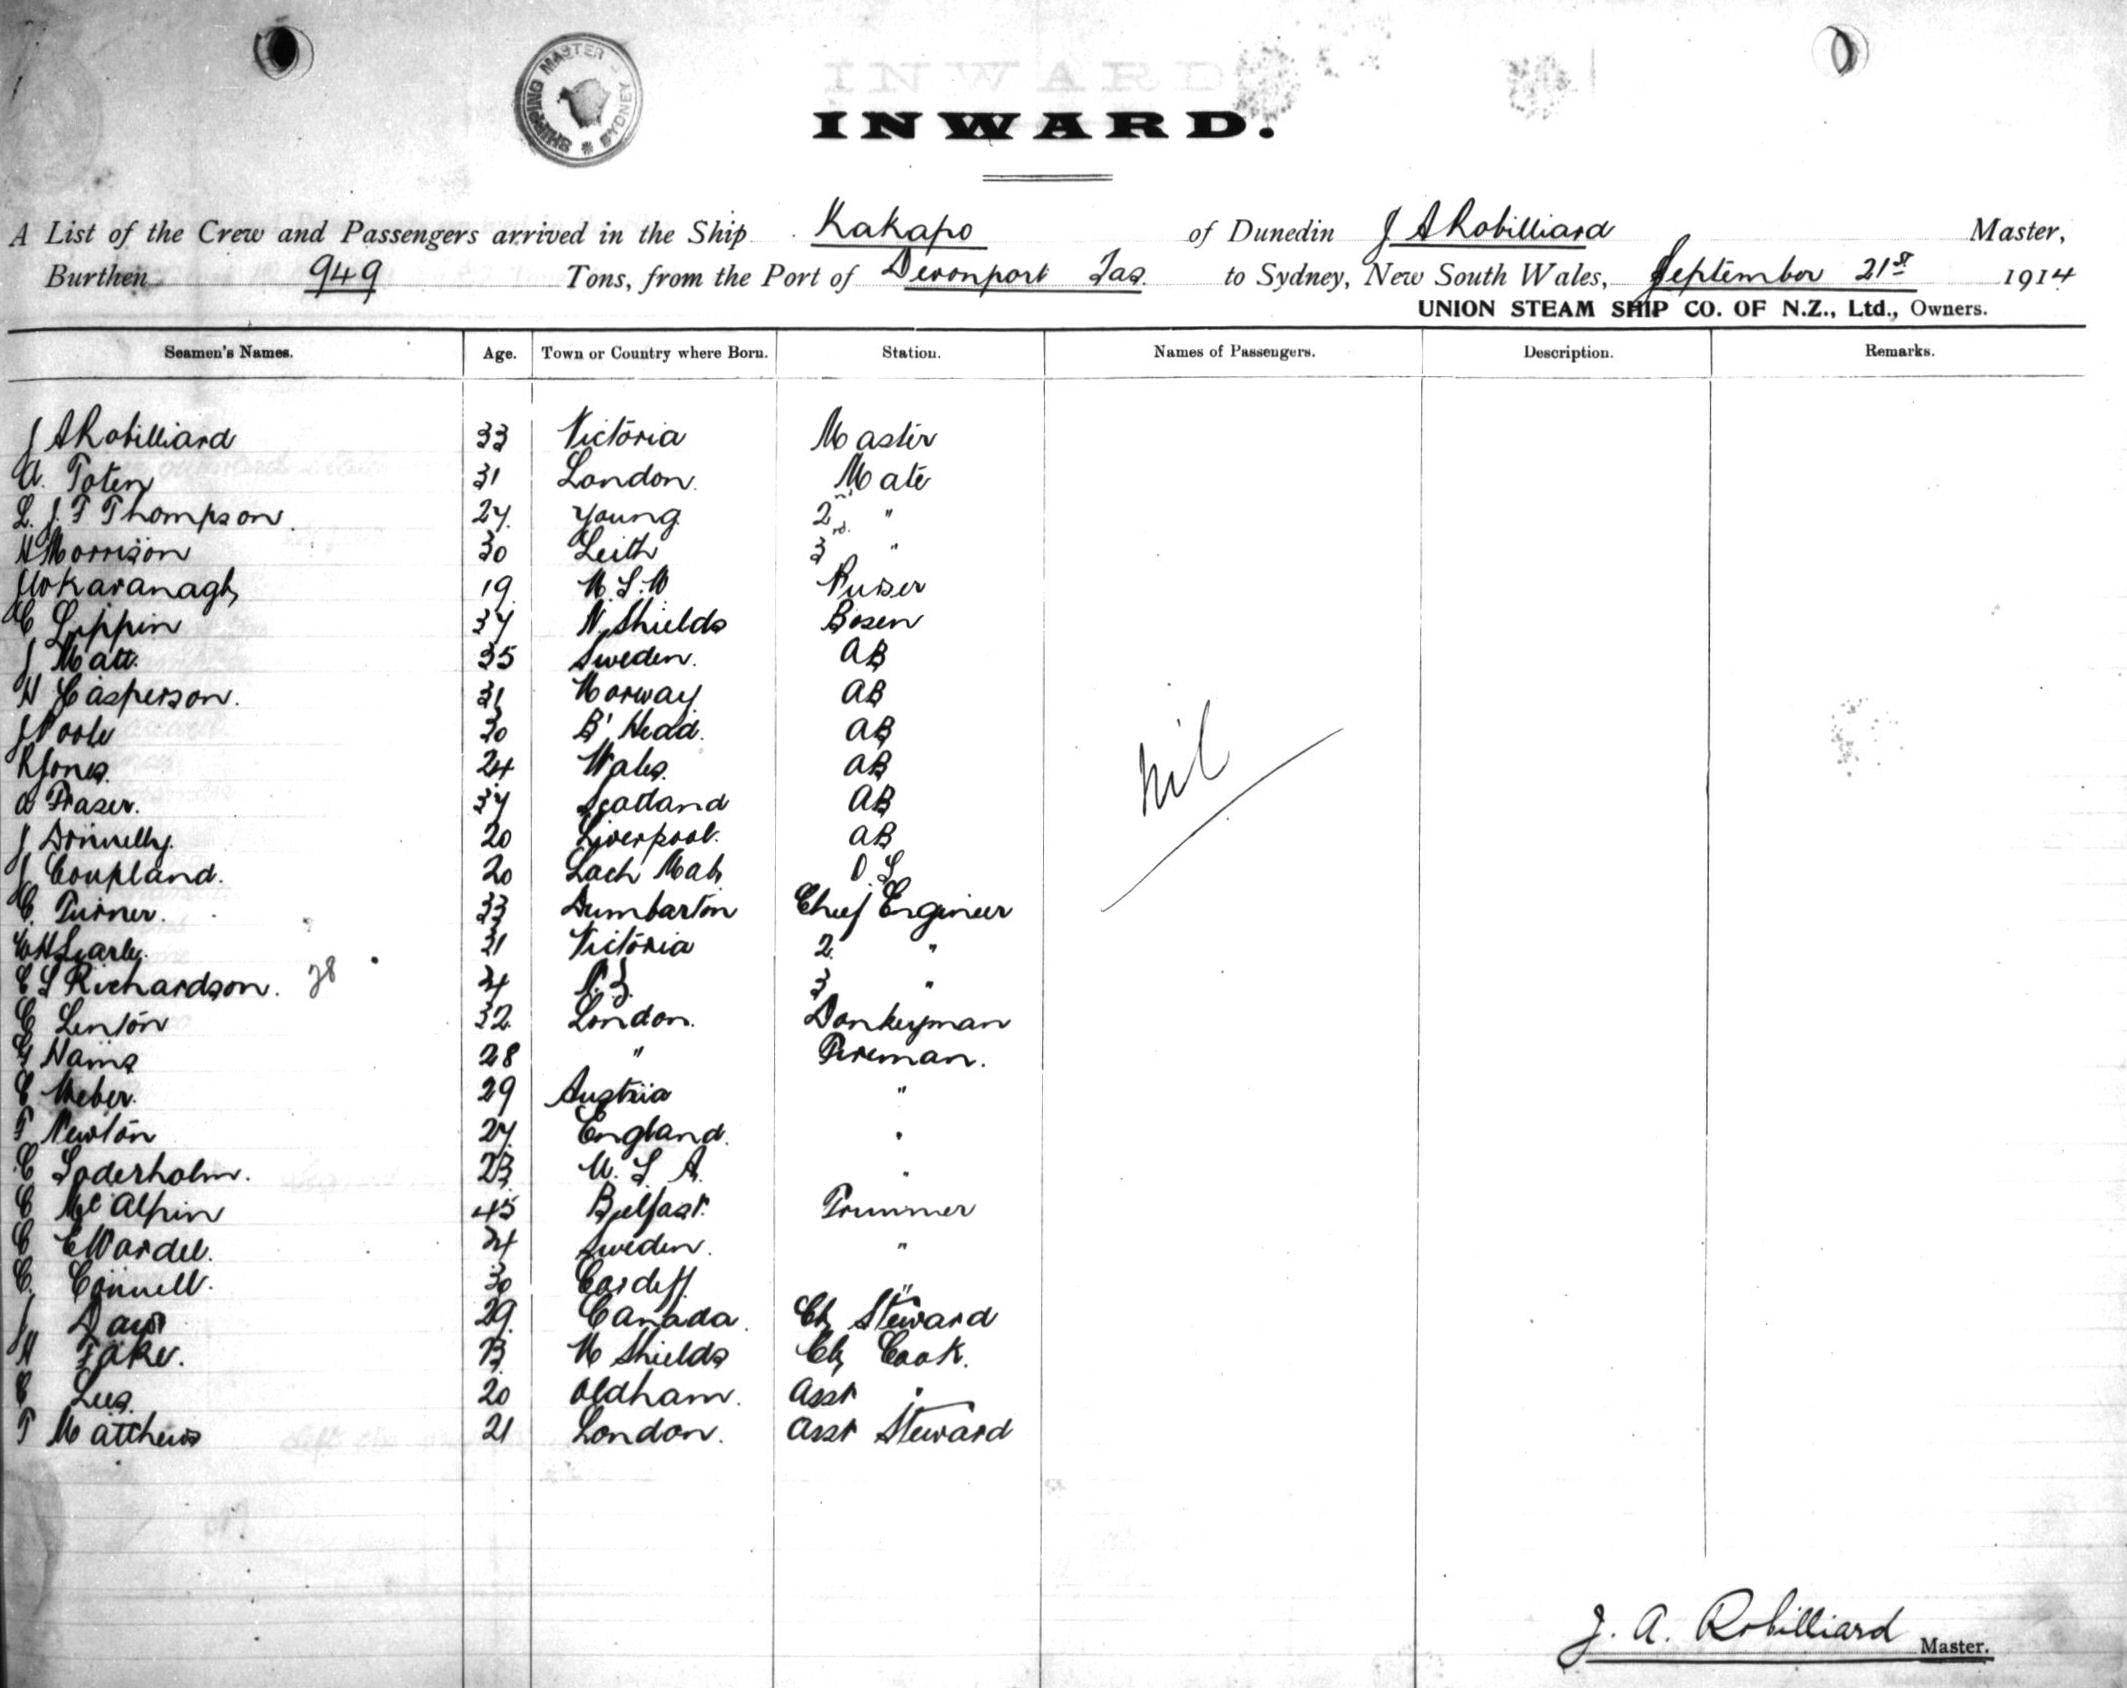 SHIPPING MASTER SYDNEY
INWARD.
A List of the Crew and Passengers arrived in the Ship Kakapo of Dunedin J A Robilliard Master,
Burthen 949 Tons, from the Port of Devonport Tas. to Sydney, New South Wales, September 21st 1914
UNION STEAM SHIP CO. OF N.Z., Ltd., Owners.
Seamen's Names. Age. Town or Country where Born. Station. Names of Passengers. Description. Remarks.
J A Robilliard 33 Victoria Master
A. Toten 31 London. Mate
L. J. F Thompson. 27. Young 2nd "
H Morrison 30 Leith 3rd. "
Kavanagh 19 N.S.W Purser
C Lippin 37 N. Shields Bosen
J Matt. 35 Sweden. AB
H Casperson. 31 Norway AB
J Poole 30 B'Head. AB
R Jones. 24 Wales. AB
A Fraser. 37 Scotland AB
J Donnelly. 20 Liverpool. AB
J Coupland. 20 O.S
C. Turner. 33 Dumbarton Chief Engineer
31 Victoria 2 "
C S Richardson. 28 N.Z. 3 "
C Lenton 32 London. Donkeyman
G Hains 28 " Fireman.
C Weber. 29 Austria "
F Newton 27. England. "
C Soderholm. 23 U.S.A. "
C McAlpin 45 Belfast. Trimmer
C Sweden. "
C. Connell. 30 Cardiff "
J 29. Canada. Ch Steward
H N Shields Ch Cook.
C Lees. 20 Oldham. Asst "
T Matthews 21 London. Asst Steward
Nil
J. A. Robilliard Master.